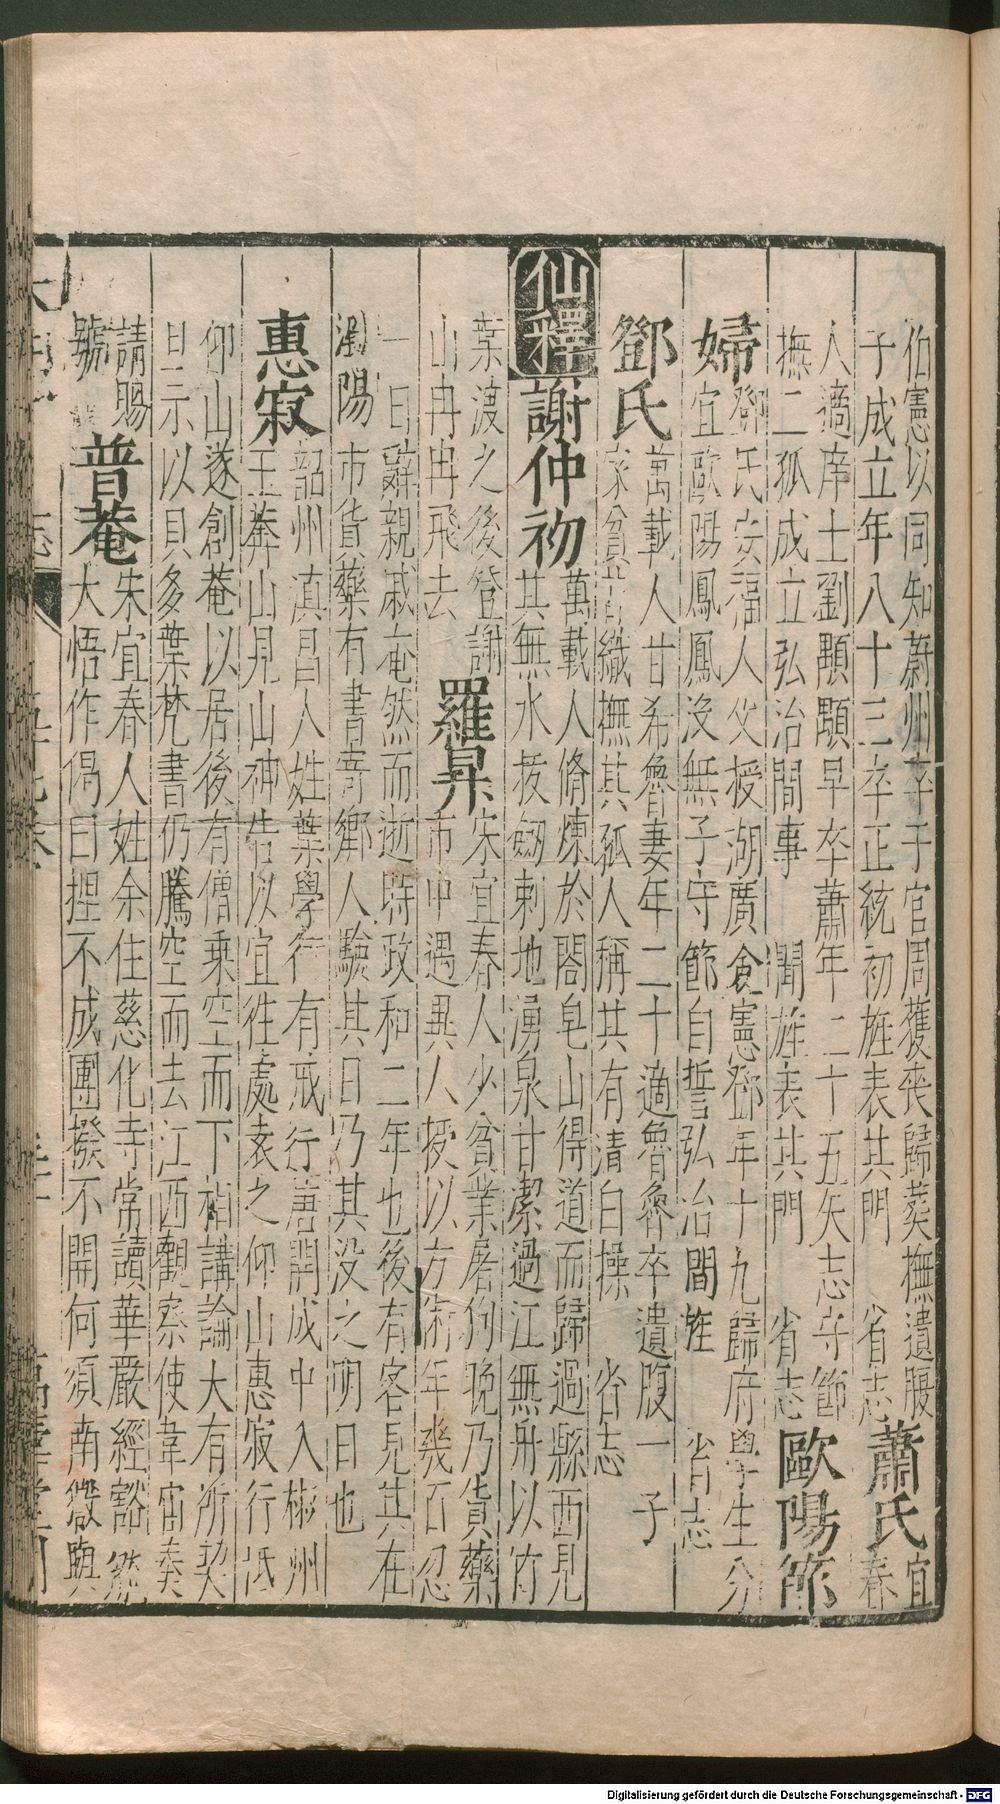 伯憲以同知蔚州卒于官周護喪歸葬撫遺腹
子成立年八十三卒正統初旌表其門　省志
蕭氏
宜
春
人適庠士劉顯顯早卒蕭年二十五矢志守節
撫二孤成立弘治間事　聞旌表其門　省志
歐陽節
婦
鄧氏安福人父授湖廣僉憲鄧年十九歸府學生分
宜歐陽鳳鳳沒無子守節自誓弘治間旌　省志
鄧氏
萬載人甘希魯妻年二十適魯魯卒遺腹一子
家貧 織撫其孤人稱其有清白操　省志
仙釋
謝仲初
萬載人脩煉於閤皂山得道而歸過縣西見
其無水拔劔刺地湧泉甘潔過江無舟以竹
葉渡之後登謝
山冉冉飛去
羅昇
宋宜春人少貧業屠狗晚乃貨藥
市中遇異人授以方術年幾百忽
一日辭親戚奄然而逝時政和二年也後有客見其在
瀏陽市貨藥有書寄鄉人驗其日乃其沒之明日也
惠寂
韶州滇昌人姓葉學行有戒行唐開成中入郴州
王莽山見山神告以宜往處袁之仰山惠寂行抵
仰山遂創菴以居後有僧乘空而下 講論大有所契
且示以貝多葉梵書仍騰空而去江西觀察使韋宙奏
請賜
號
普菴
宋宜春人姓余住慈化寺常讀華嚴經豁然
大悟作偈曰揑不成團撥不開何須南嶽與
Digitalisierung gefördert durch die Deutsche Forschungsgemeinschaft - DFG